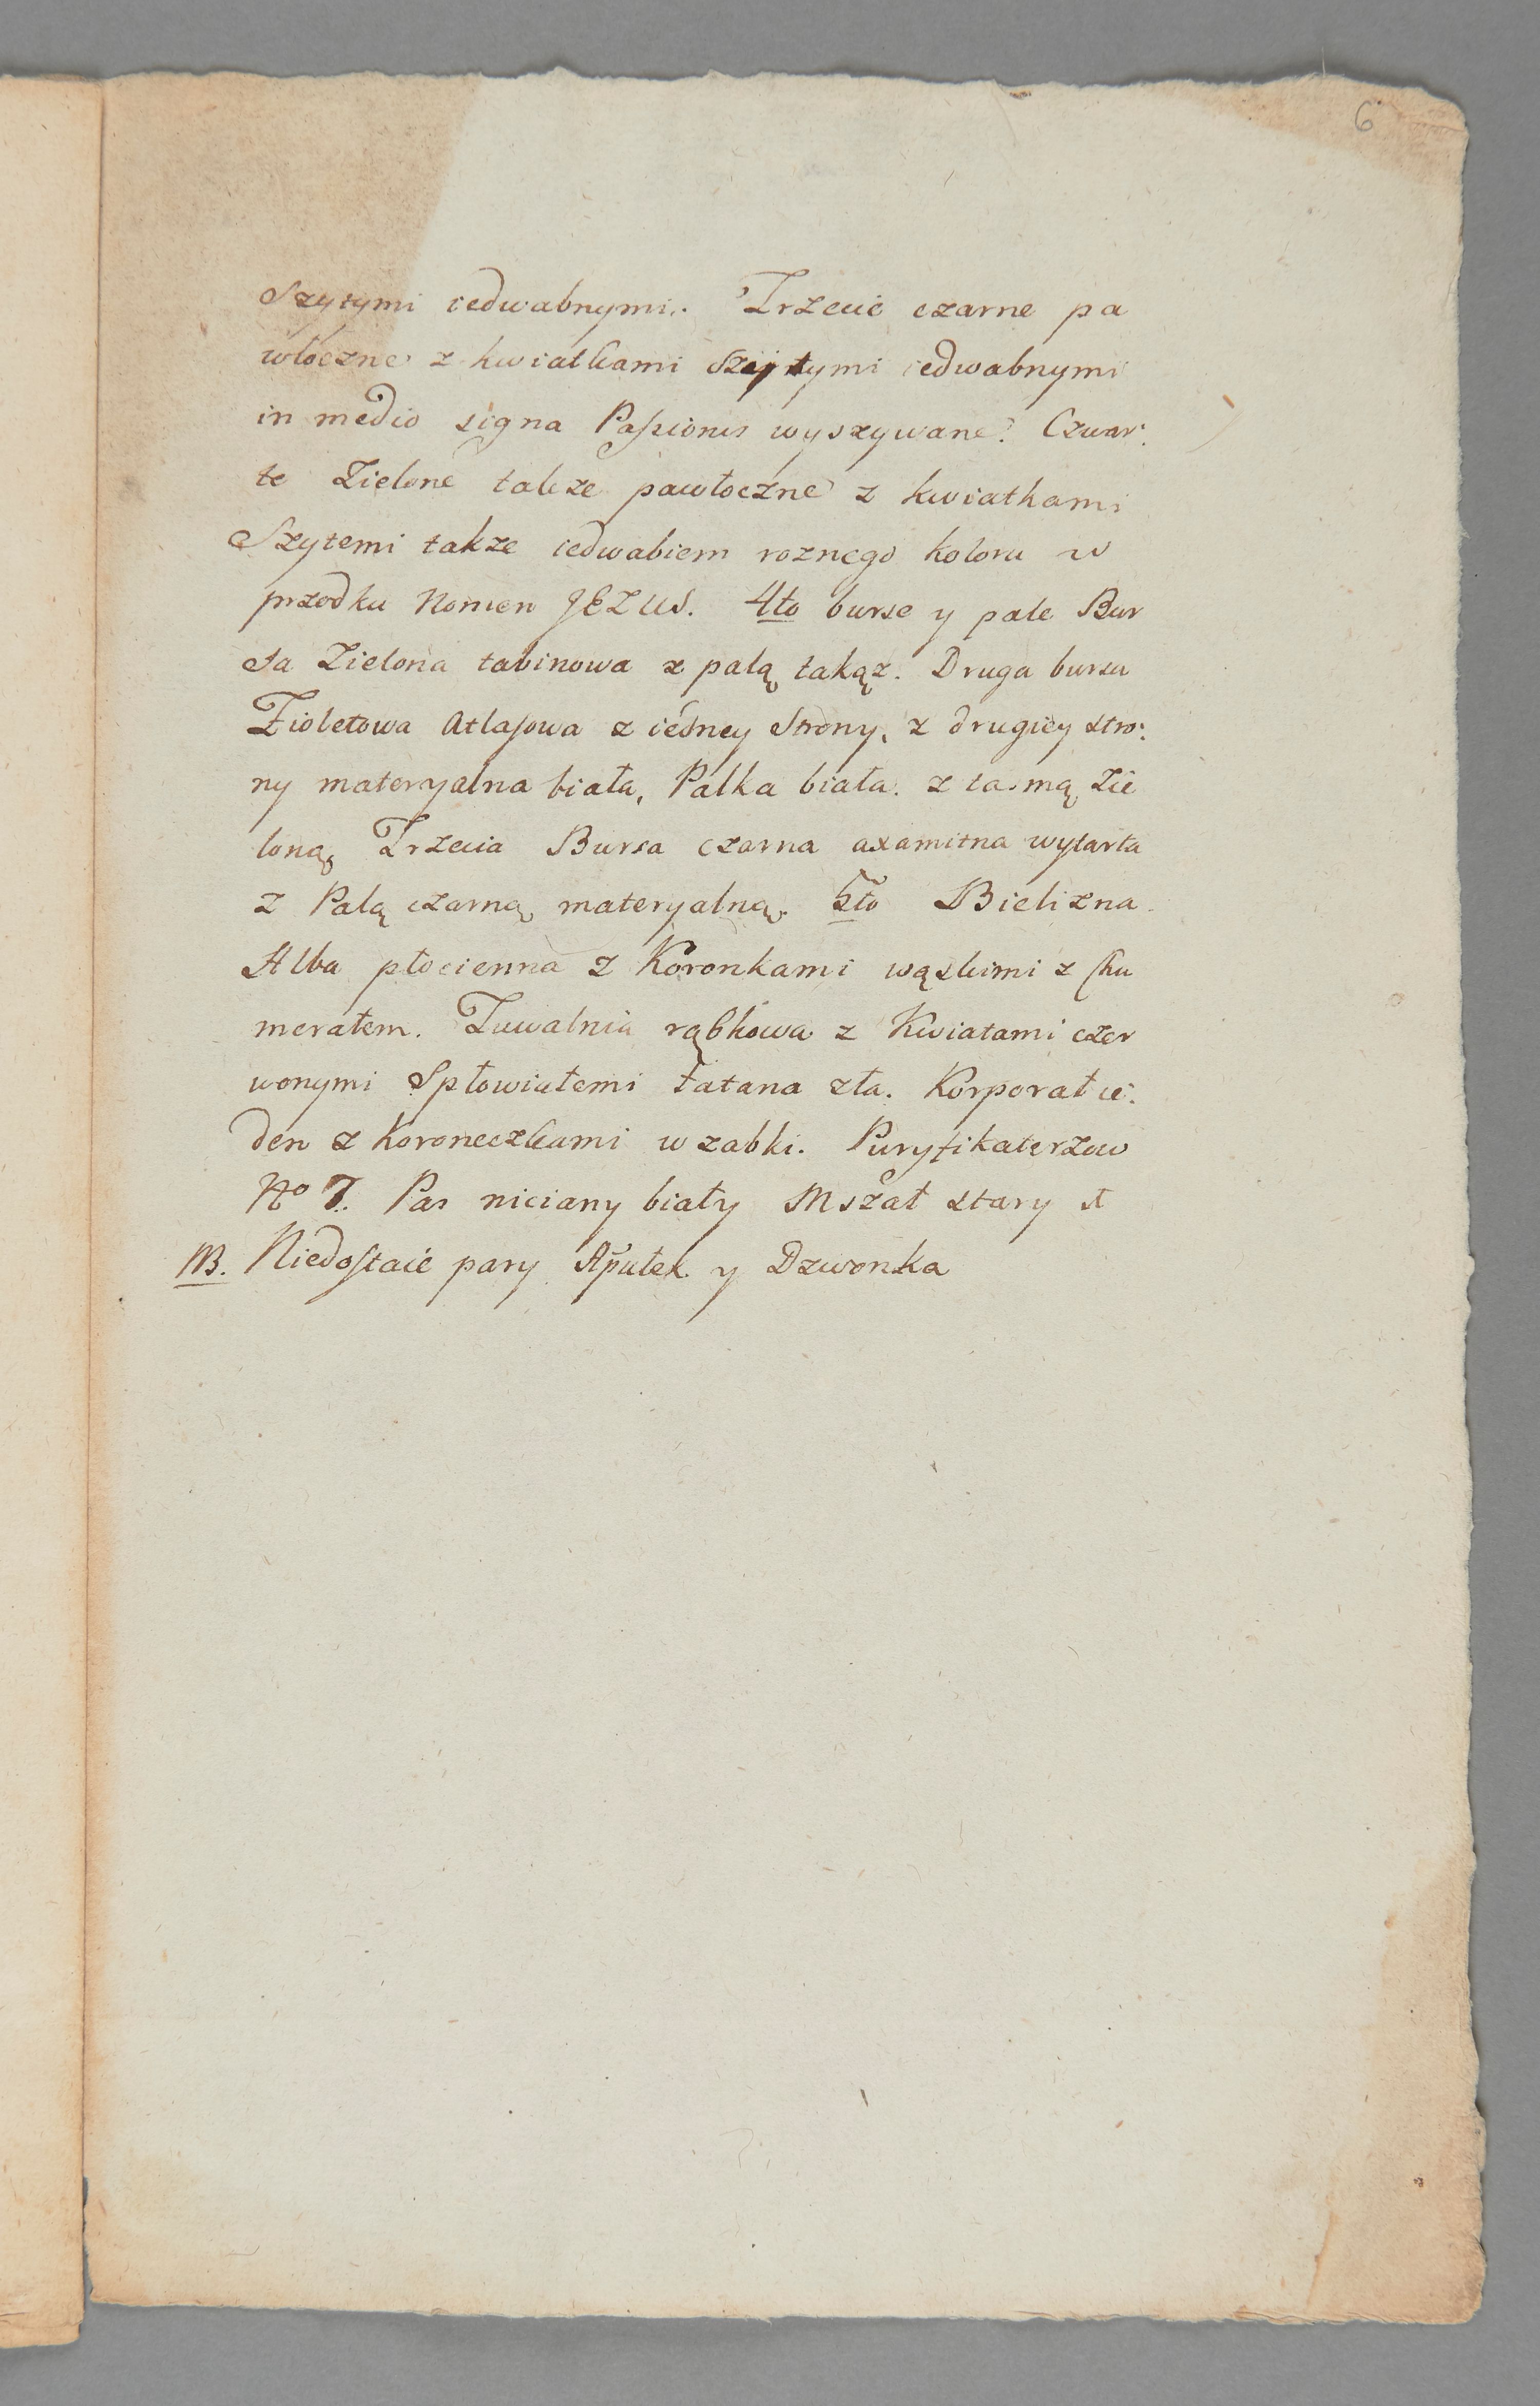 6
Szytymi iedwabnymi. Trzecie czarne pa
włoczne z kwiatkami Szytymi iedwabnymi
in medio signa Paſsionis wyszywane. Czwar:
te Zielone takze pawłoczne z kwiatkami
Szytemi takze iedwabiem roznego koloru w
przodku Nomen JEZUS. 4to burse y pale Bur
sa Zielona tabinowa z palą takąz. Druga bursa
Fioletowa Atlaſowa z iedney Strony, z drugiey stro:
ny materyalna biała, Palka biała z tasmą zie
loną, Trzecia Bursa czarna axamitna wytarta
z Palą czarną materyalną. 5to Bielizna.
Alba płocienna z Koronkami wąskimi z Hu
merałem. Tuwalnia rąbkowa z Kwiatami czer
wonymi Spłowiałemi łatana zła. Korporał ie:
den z Koroneczkami w ząbki. Puryfikaterzow
No 7. Pas niciany biały Mszał stary
NB. Niedoſtaie pary Apułek y Dzwonka